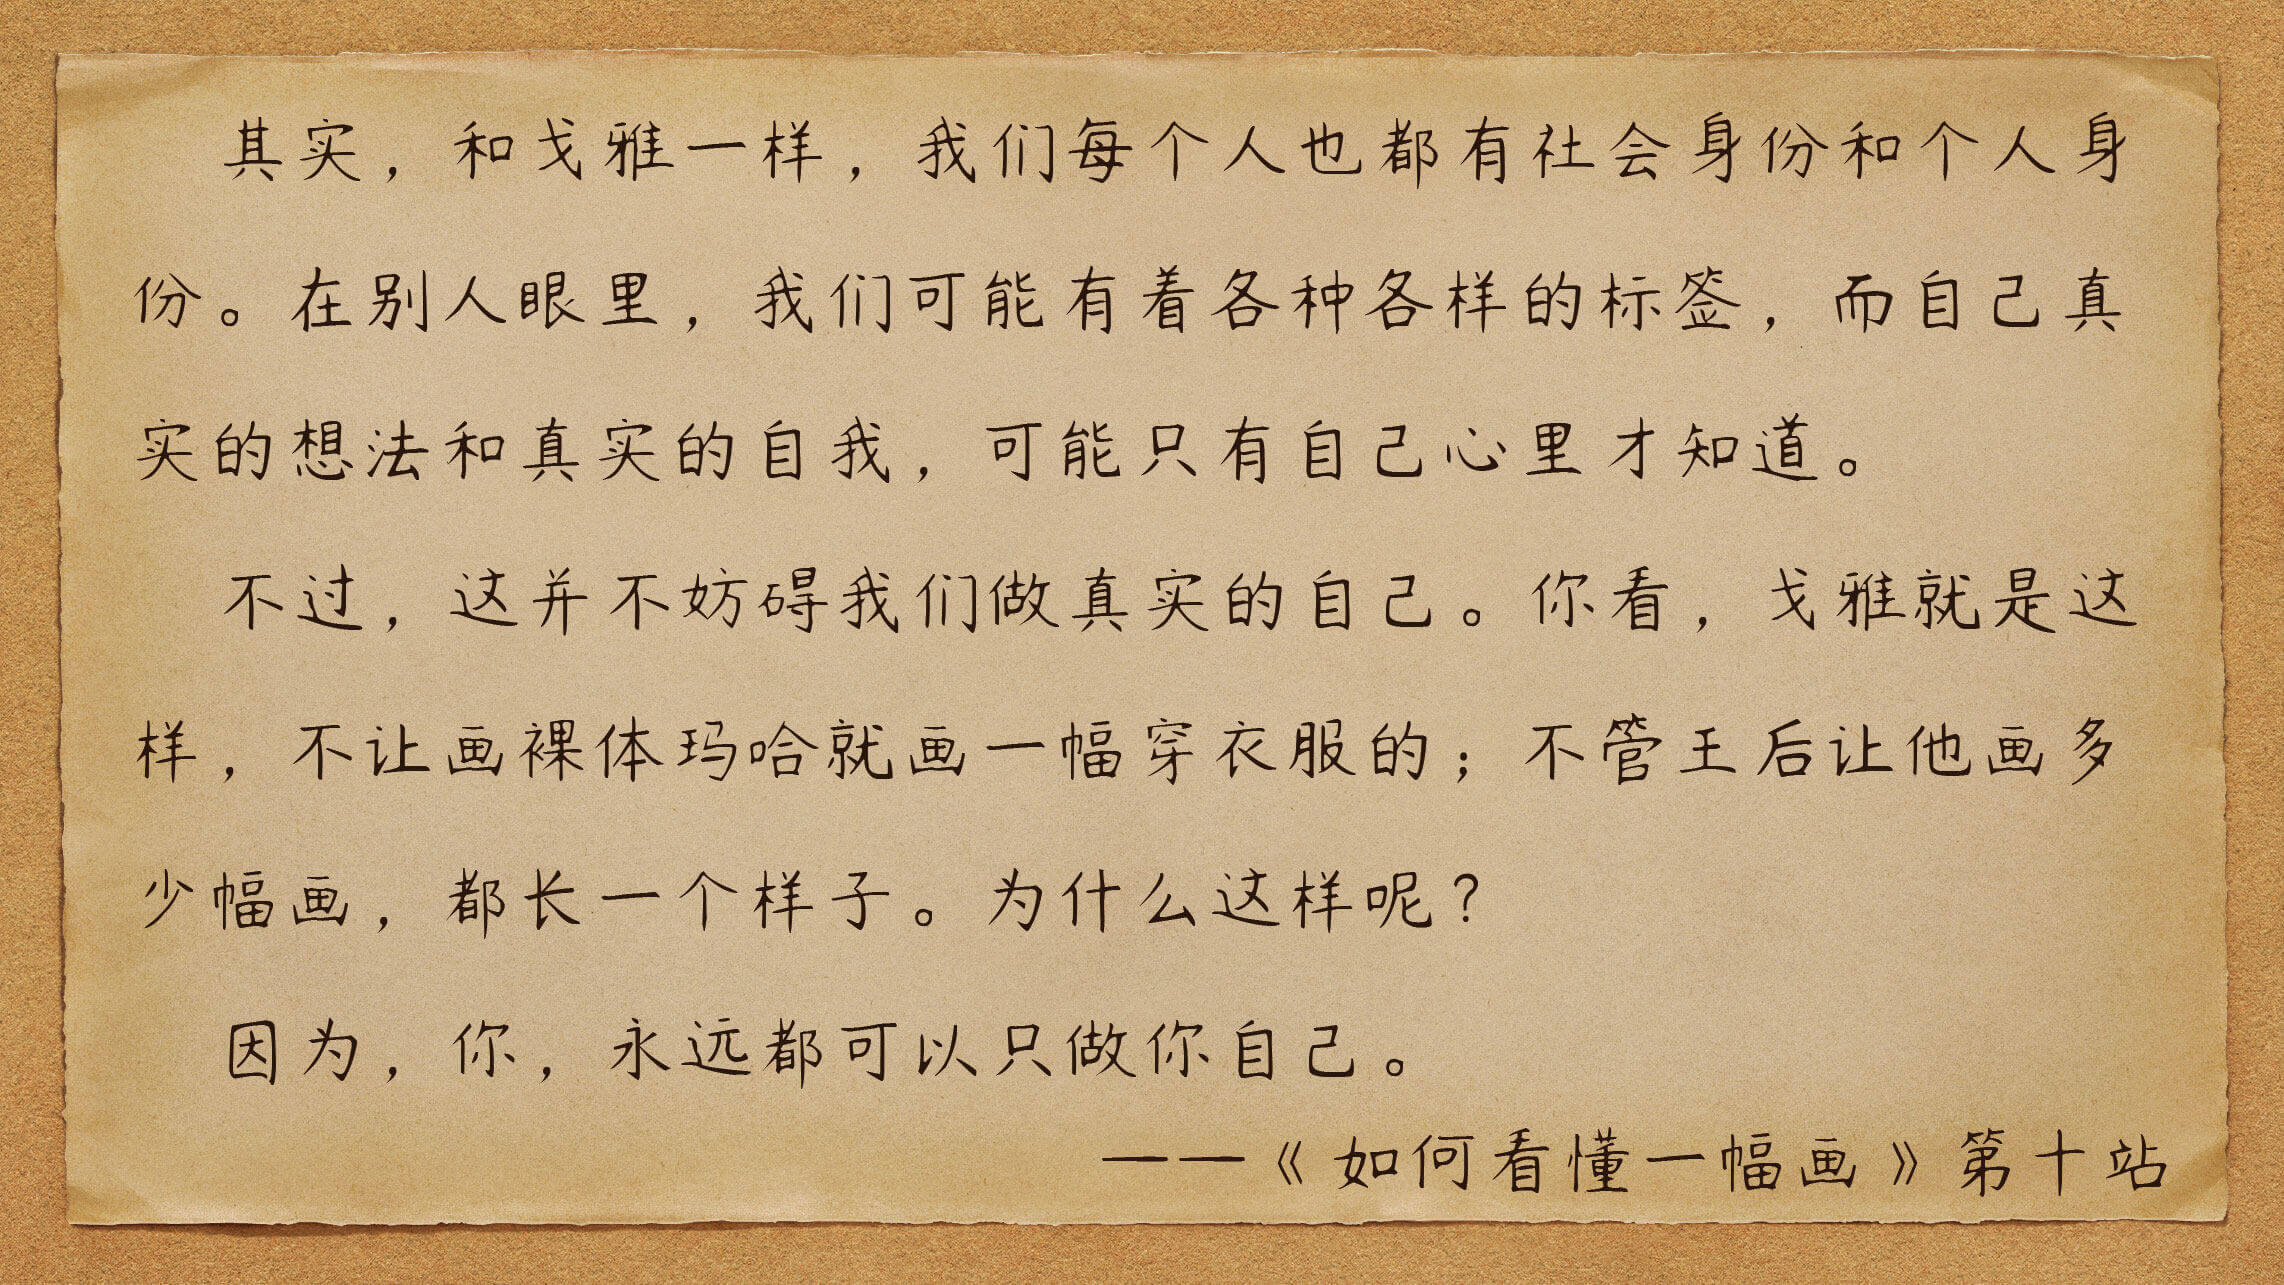 其实，和戈雅一样，我们每个人也都有社会身份和个人身
份。在别人眼里，我们可能有着各种各样的标签，而自己真
实的想法和真实的自我，可能只有自己心里才知道。
不过，这并不妨碍我们做真实的自己。你看，戈雅就是这
样，不让画裸体玛哈就画一幅穿衣服的；不管王后让他画多
少幅画，都长一个样子。为什么这样呢？
因为，你，永远都可以只做你自己。
——《如何看懂一幅画》第十站